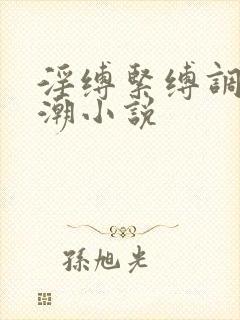 淫缚緊缚調
潮小説
孫旭光